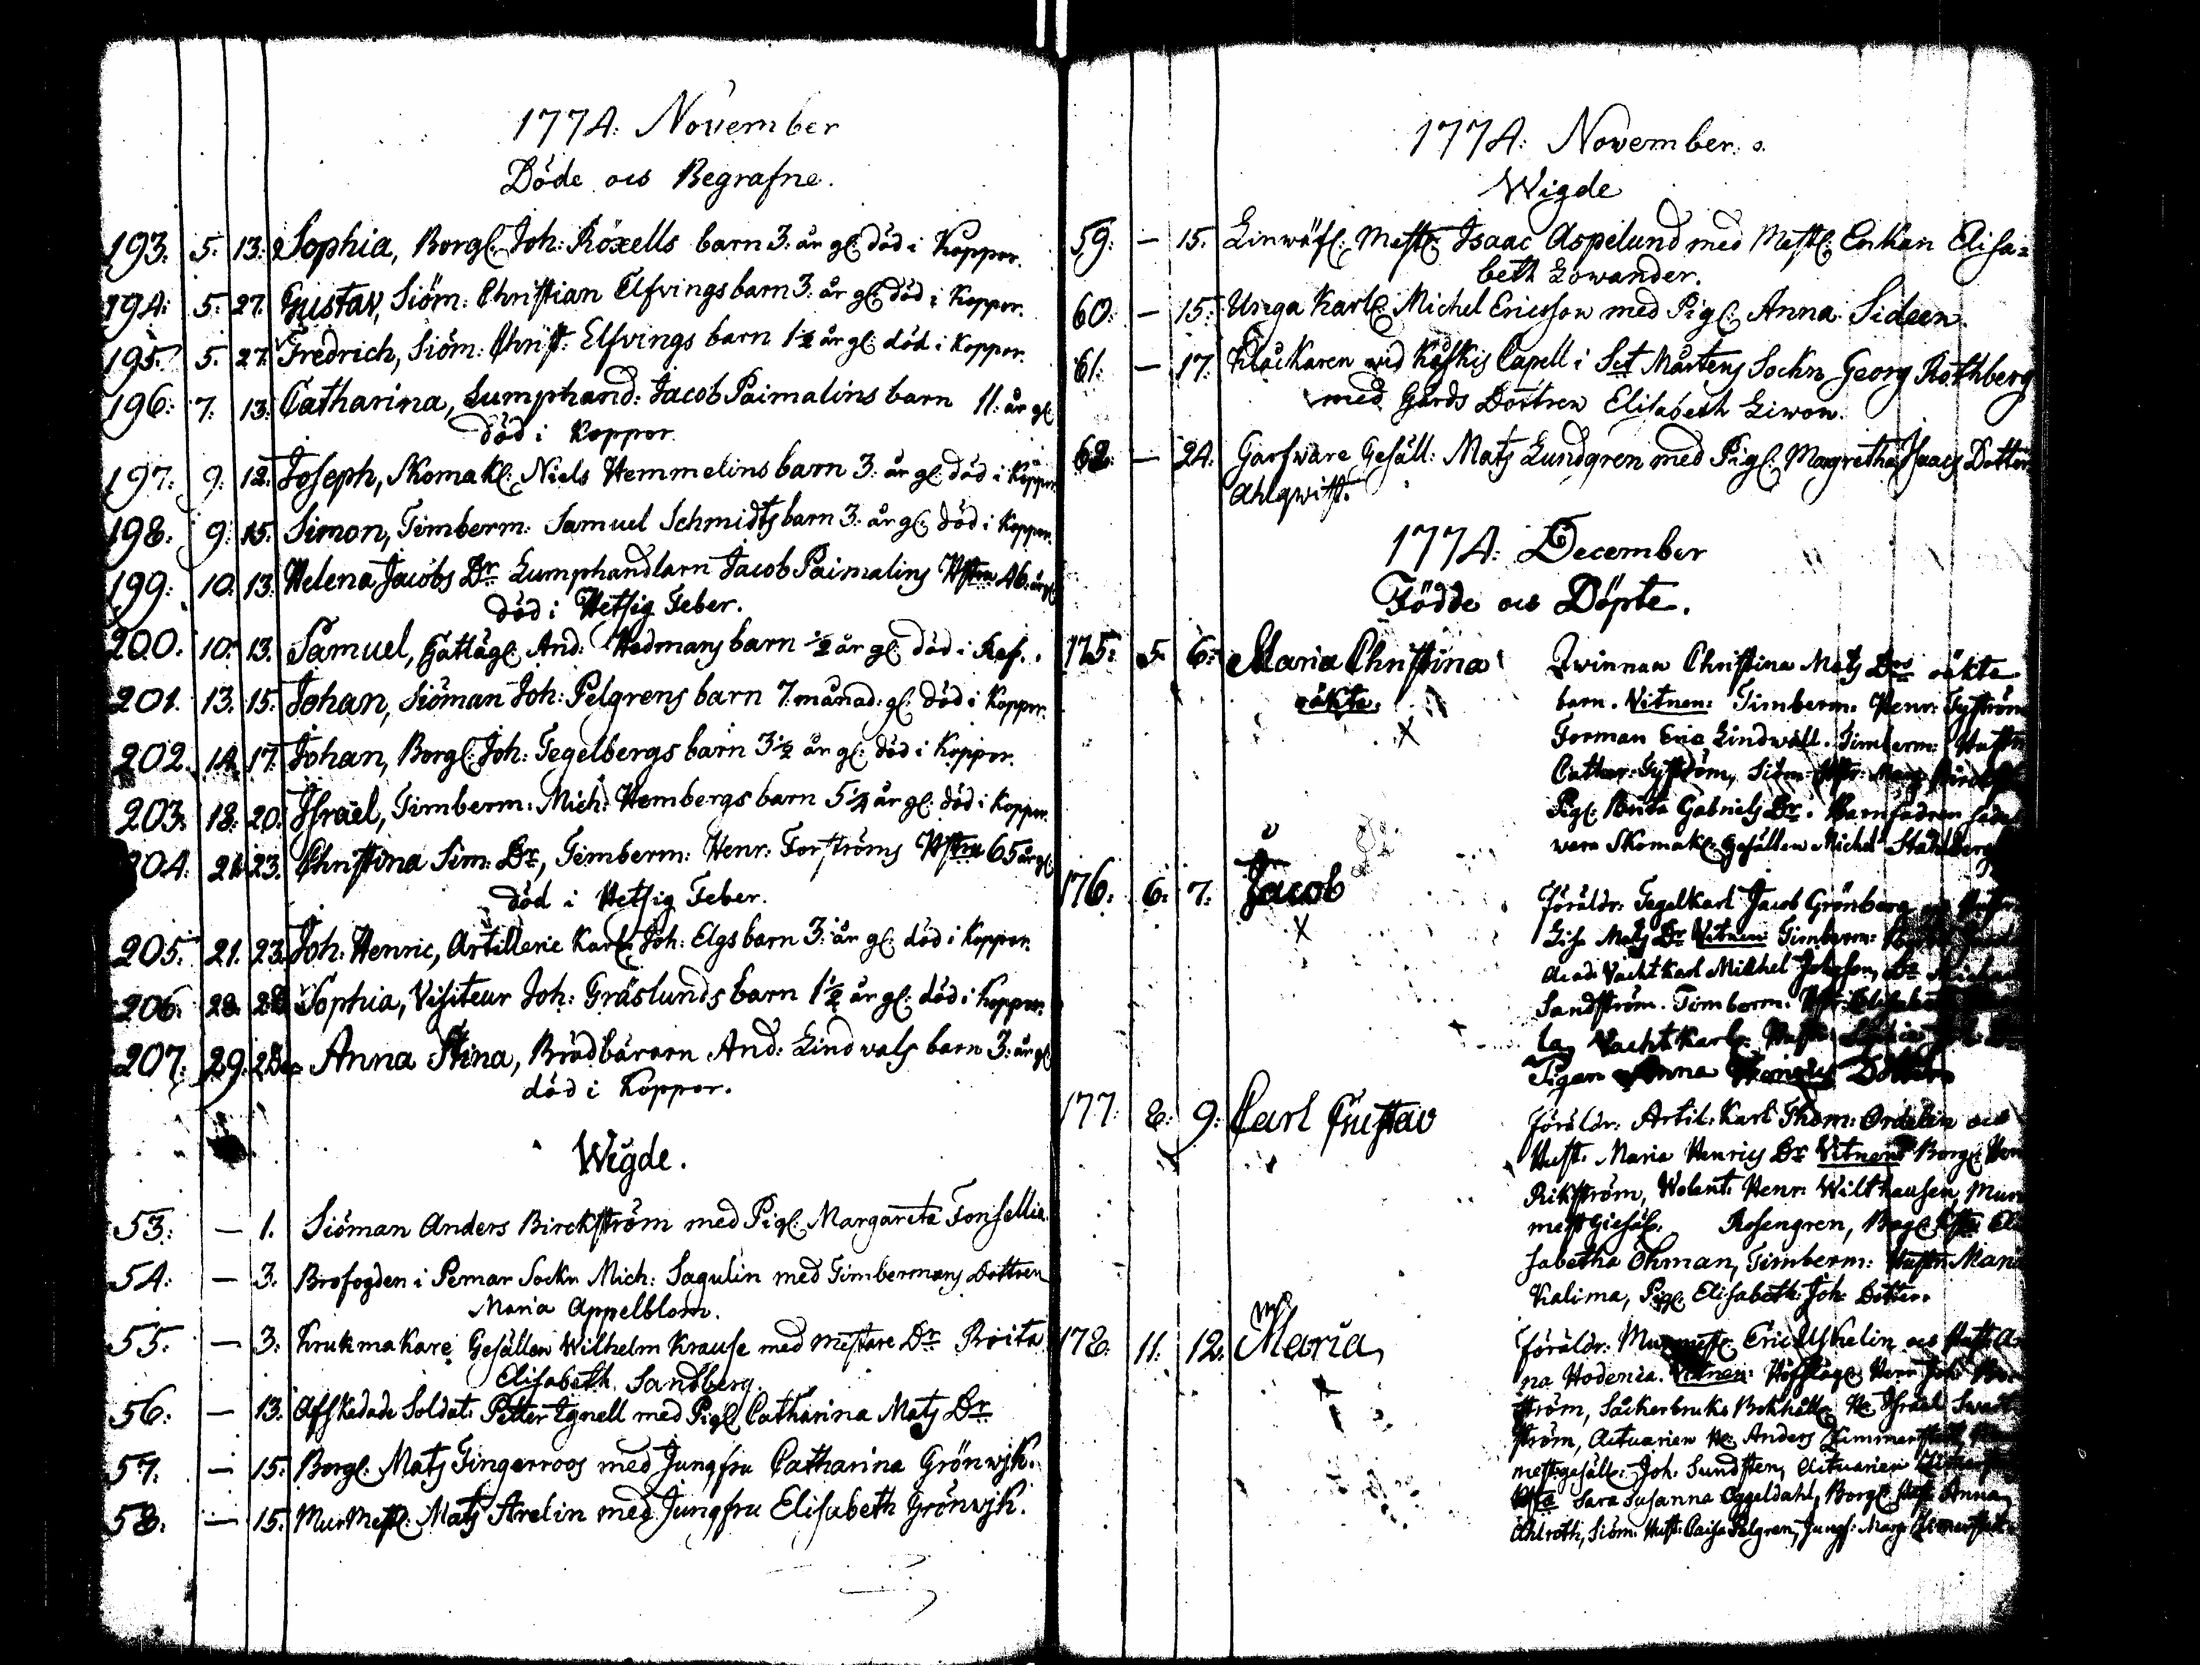 1774: November
Döde och Begrafne.
193. 5. 13. Sophia, Borgl: Joh: Röxells barn 3. år gl: död i Koppor.
194: 5. 27. Gustav, Siöm: Christian Elfvings barn 3: år gl: död i Koppor.
195. 5. 27. Fredrich, Siöm: Christ: Elfvings barn 1½ år gl: död i Koppor.
196: 7. 13. Catharina, Lumphand: Jacob Paimalins barn 11: år gl:
död i Koppor.
197. 9. 12. Joseph, Skomakl: Niels Hemmelins barn 3: år gl: död i Koppor
198. 9. 15. Simon, Timberm: Samuel Schmidts barn 3: år gl: död i Koppor.
199. 10. 13. Helena Jacobs Dr Lumphandlarn Jacob Paimalins Hstru 46: år gl:
död i Hetsig Feber.
200. 10. 13. Samuel, And: Hedmans barn ½ år gl: död i
201. 13. 15. Johan, Siöman Joh: Pelgrens barn 7. månad: gl: död i Koppor.
202. 14. 17. Johan, Borgl: Joh: Tegelbergs barn 3½ år gl: död i Koppor.
203. 18. 20. Israel, Timberm: Mich: Hembergs barn 5¼ år gl: död i Koppor.
204. 21. 23. Christina Sim: Dr, Timberm: Henr: Forströms Hstru 65 år gl:
död i Hetsig Feber.
205. 21. 23. Joh: Henric, Artillerie Karl: Joh: Elgs barn 3: år gl: död i Koppor.
206. 28. Sophia, Visiteur Joh: Gräslunds barn 1½ år gl: död i Koppor.
207. 29. Anna Stina, Brödbäraren And: Lindvals barn 3: år gl:
död i Koppor.
Wigde.
53: — 1. Siöman Anders Birckström med Pigl: Margareta Fonsellia.
54: — 3. Brofogden i Pemar Sockn Mich: Sagulin med Timbermans Dottren
Maria Appelblom.
55. — 3. Krukmakare Gesällen Wilhelm Krause med mestare Dr Brita
Elisabeth Sandberg.
56: — 13. Afskedade Soldat: Petter Egnell med Pigl: Catharina Mats Dr
57. — 15. Borgl: Mats Tingerroos med Jungfru Catharina Grönwjk.
58. — 15. MurMestl: Mats Arelin med Jungfru Elisabeth Grönwjk.
1774: November:
Wigde
59: — 15. Linwäfl: Mestl: Isaac Aspelund med Mestl: Enkan Elisa=
beth Lowander.
60: — 15: Unga Karl: Michel Ericsson med Pigl: Anna Sideen
61: — 17. Klåckaren wid Koskis Capell i Sct Mårtens Sockn Georg Rothberg
med Gårds Dottren Elisabeth Liwon.
62: — 24: Garfware Gesäll: Mats Lundgren med Pigl: Margretha Isacs Dotter
Ahlqwist.
1774: December
Födde och Döpte.
175: 5. 6. Maria Christina Qwinnan Christina Mats Drs oäkta
oäkta. barn. Vitnen: Timberm: Henr: Tyström
Forman Eric Lindwall. Timberm: Hustr
Cathar: Tyström, Siöm:
Pigl: Brita Gabriels Dr. Barnfadren
wara Skomakl: Gesällen Michel Stahlberg
176: 6. 7. Jacob Föräldr: Tegelkarl Jacob Grönberg
Lisa Mats Dr Vitnen Timberm:
Acad: Vachtkarl Michel Johsson,
Sandström. Timberm:
Vachtkarl:
Pigan Anna Dotter
177. 8. 9. Carl Gustav Föräldr: Artil: Karl Thom: Ordelin och
Hust. Maria Henrics Dr Vitnen Borgl:
Rikström, Volent: Henr: Wilthausen, Mur
mest Giesäl: Rosengren, Borgl: Hstru Eli
sabetha Öhman, Timberm: Hustr Maria
Kalima, Pigl: Elisabeth Joh: Dotter.
178. 11. 12. Maria, Föräldr: Murmestl: Eric Uskelin och Hust: An
na Hodenia. Vitnen:
ström, Såckerbruks Bokhåll: Hr Israel
ström, Actuarien Hr Anders
mest:gesäll: Joh: Sundsten, Actuarien
Sara Susanna Oggeldahl, Borgl: Anna
Ahlroth, Siöm: Hust: Caisa Pelgren, Jungf: Marg: